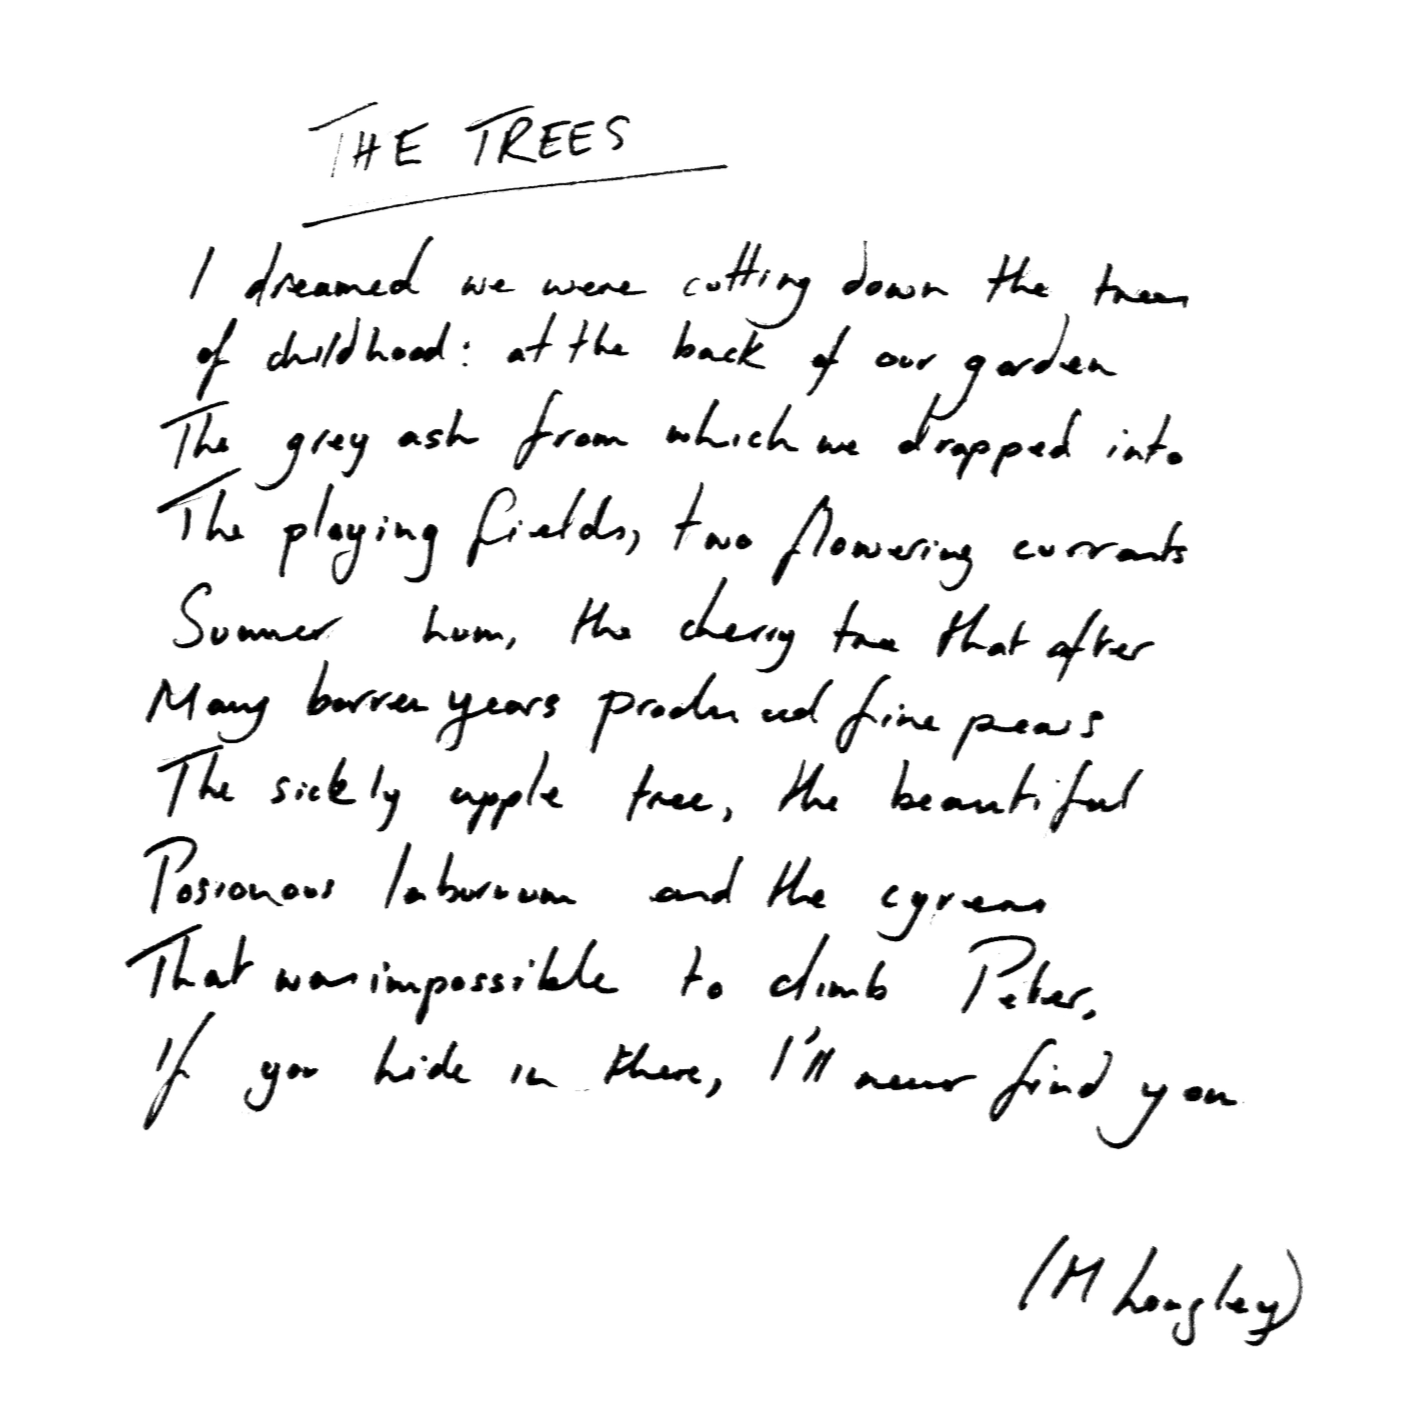 THE TREES
I dreamed we were cutting down the trees
of childhood: at the back of our garden
The grey ash from which we dropped into
The playing fields, two flowering currants
Summer hum, the cherry tree that after
Many barren years produced fine pears
The sickly apple tree, the beautiful
Posionous laburnum and the cypress
That was impossible to climb Peter,
If you hide in there, I'll never find you
(M Longley)